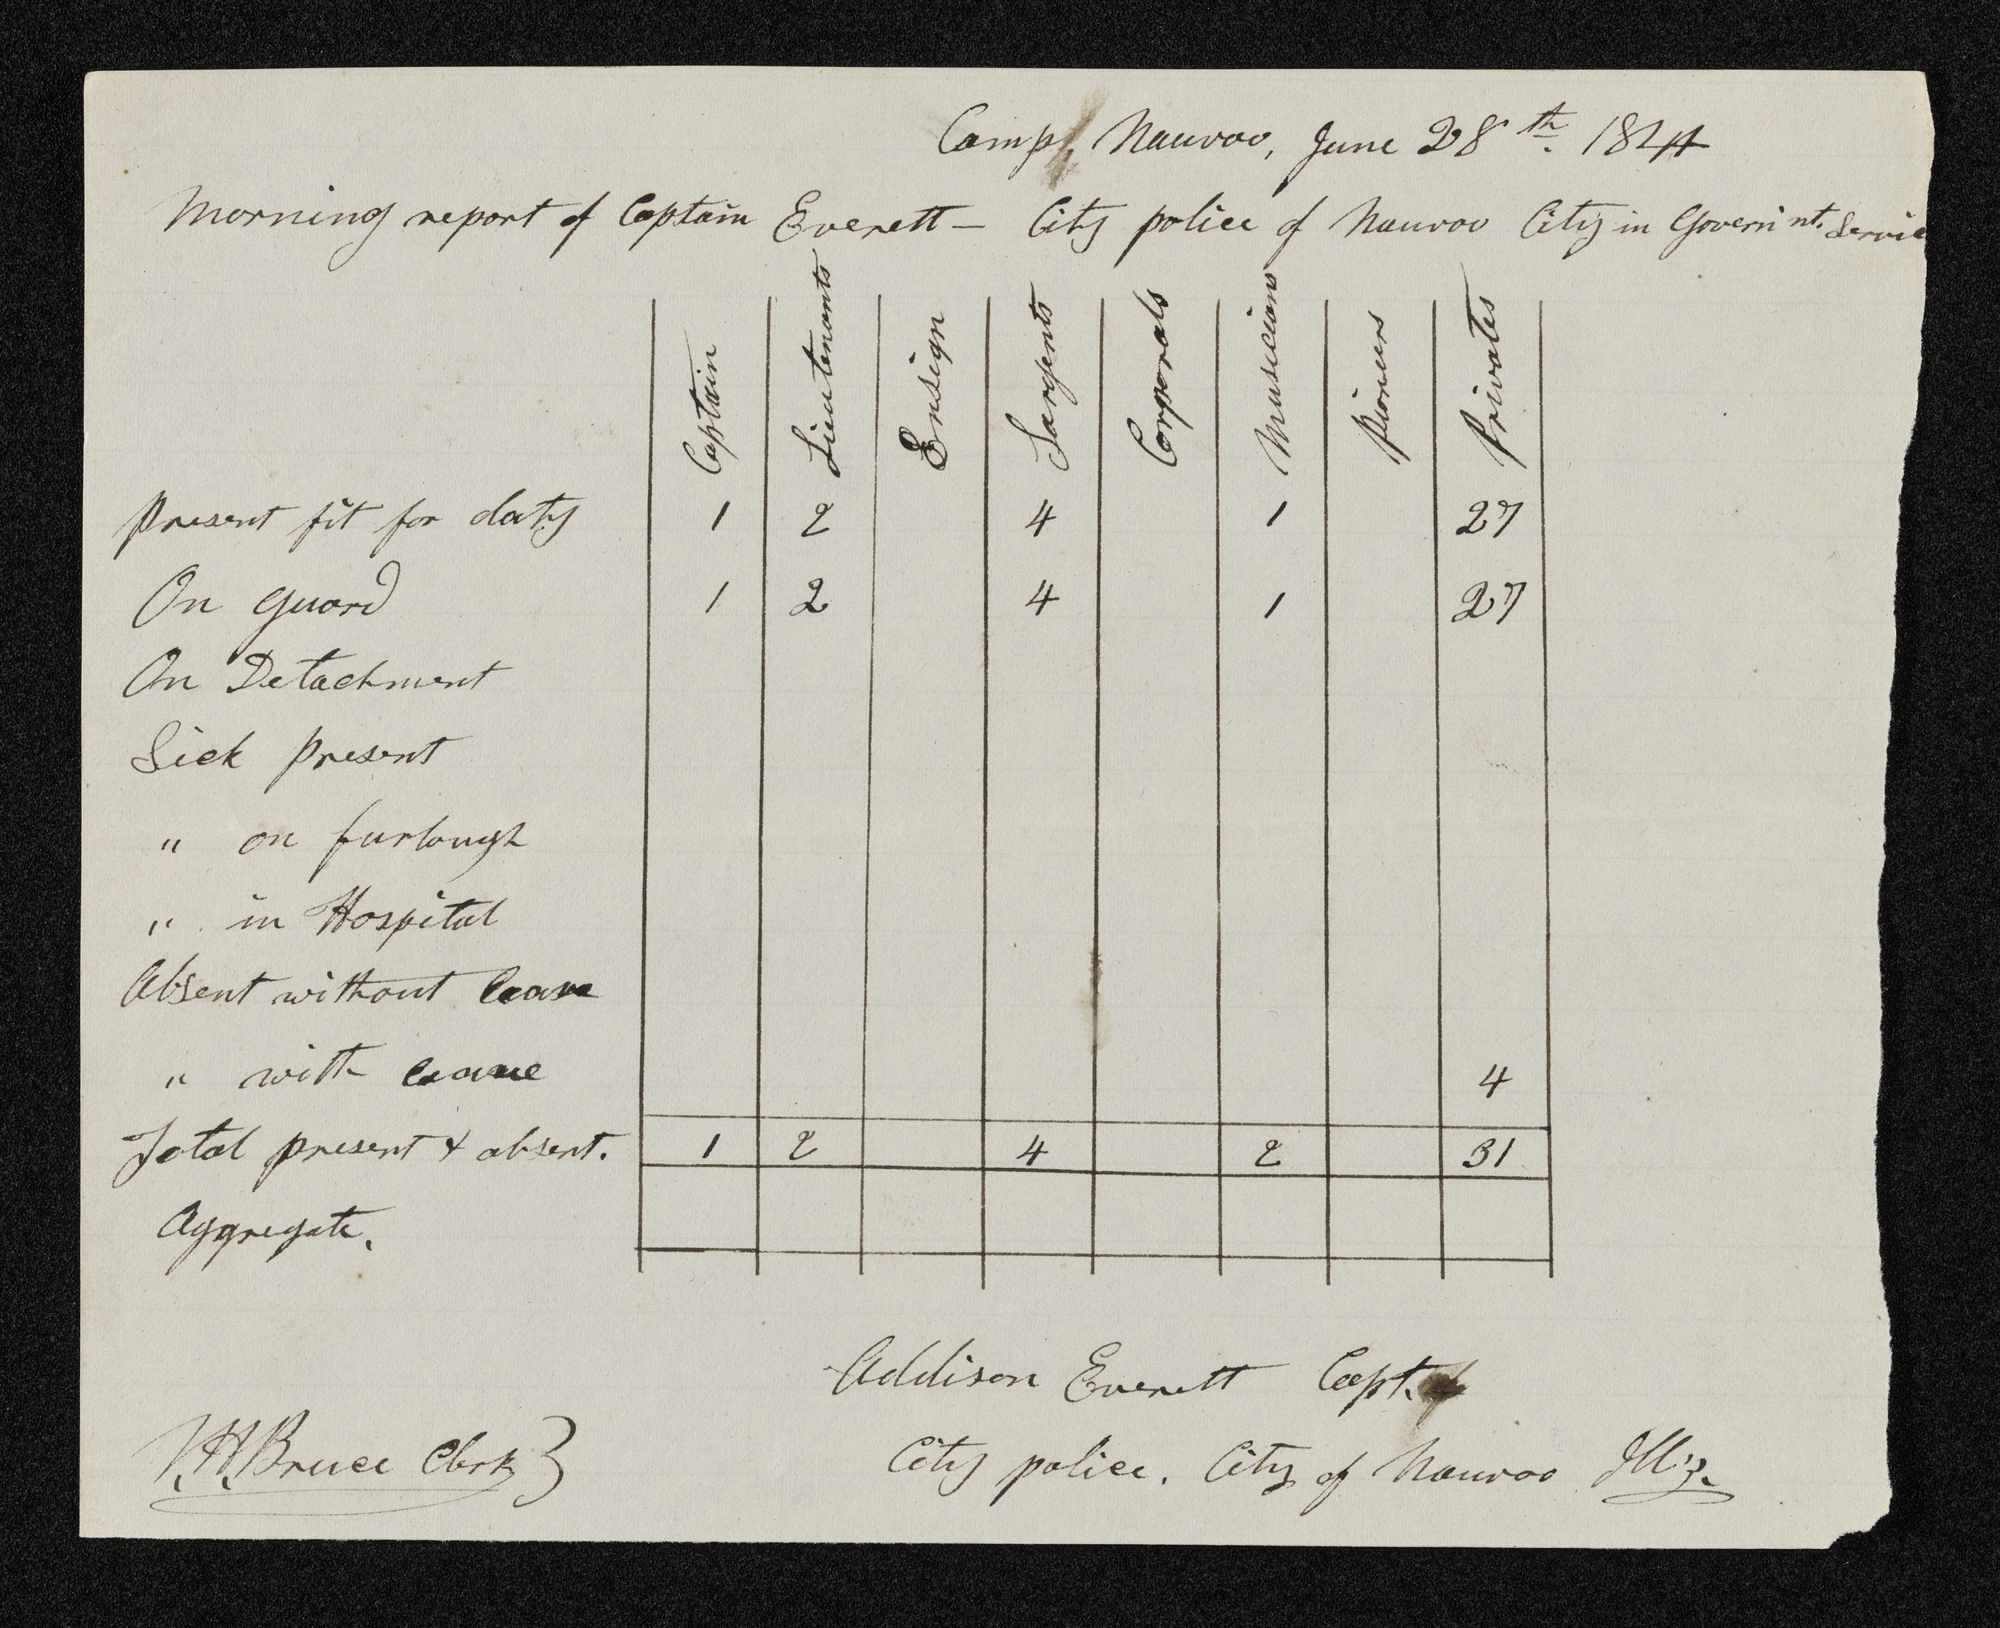 Camp, Nauvoo, June 28th. 1844
Morning report of Captain Everett — City police of Nauvoo City in Governi nt. Servic
Captain Lieutenants Ensign Sargents Corporals Musicians Pioneers Privates
Present fit for duty 1 2 4 1 27
On guard 1 2 4 1 27
On Detachment
Sick Present
" on furlough
" in Hospital
Absent without leave
" with leave 4
Total present & absent. 1 2 4 2 31
Aggregate.
Addison Everett Capt.
Bruce Clerk
City police. City of Nauvoo